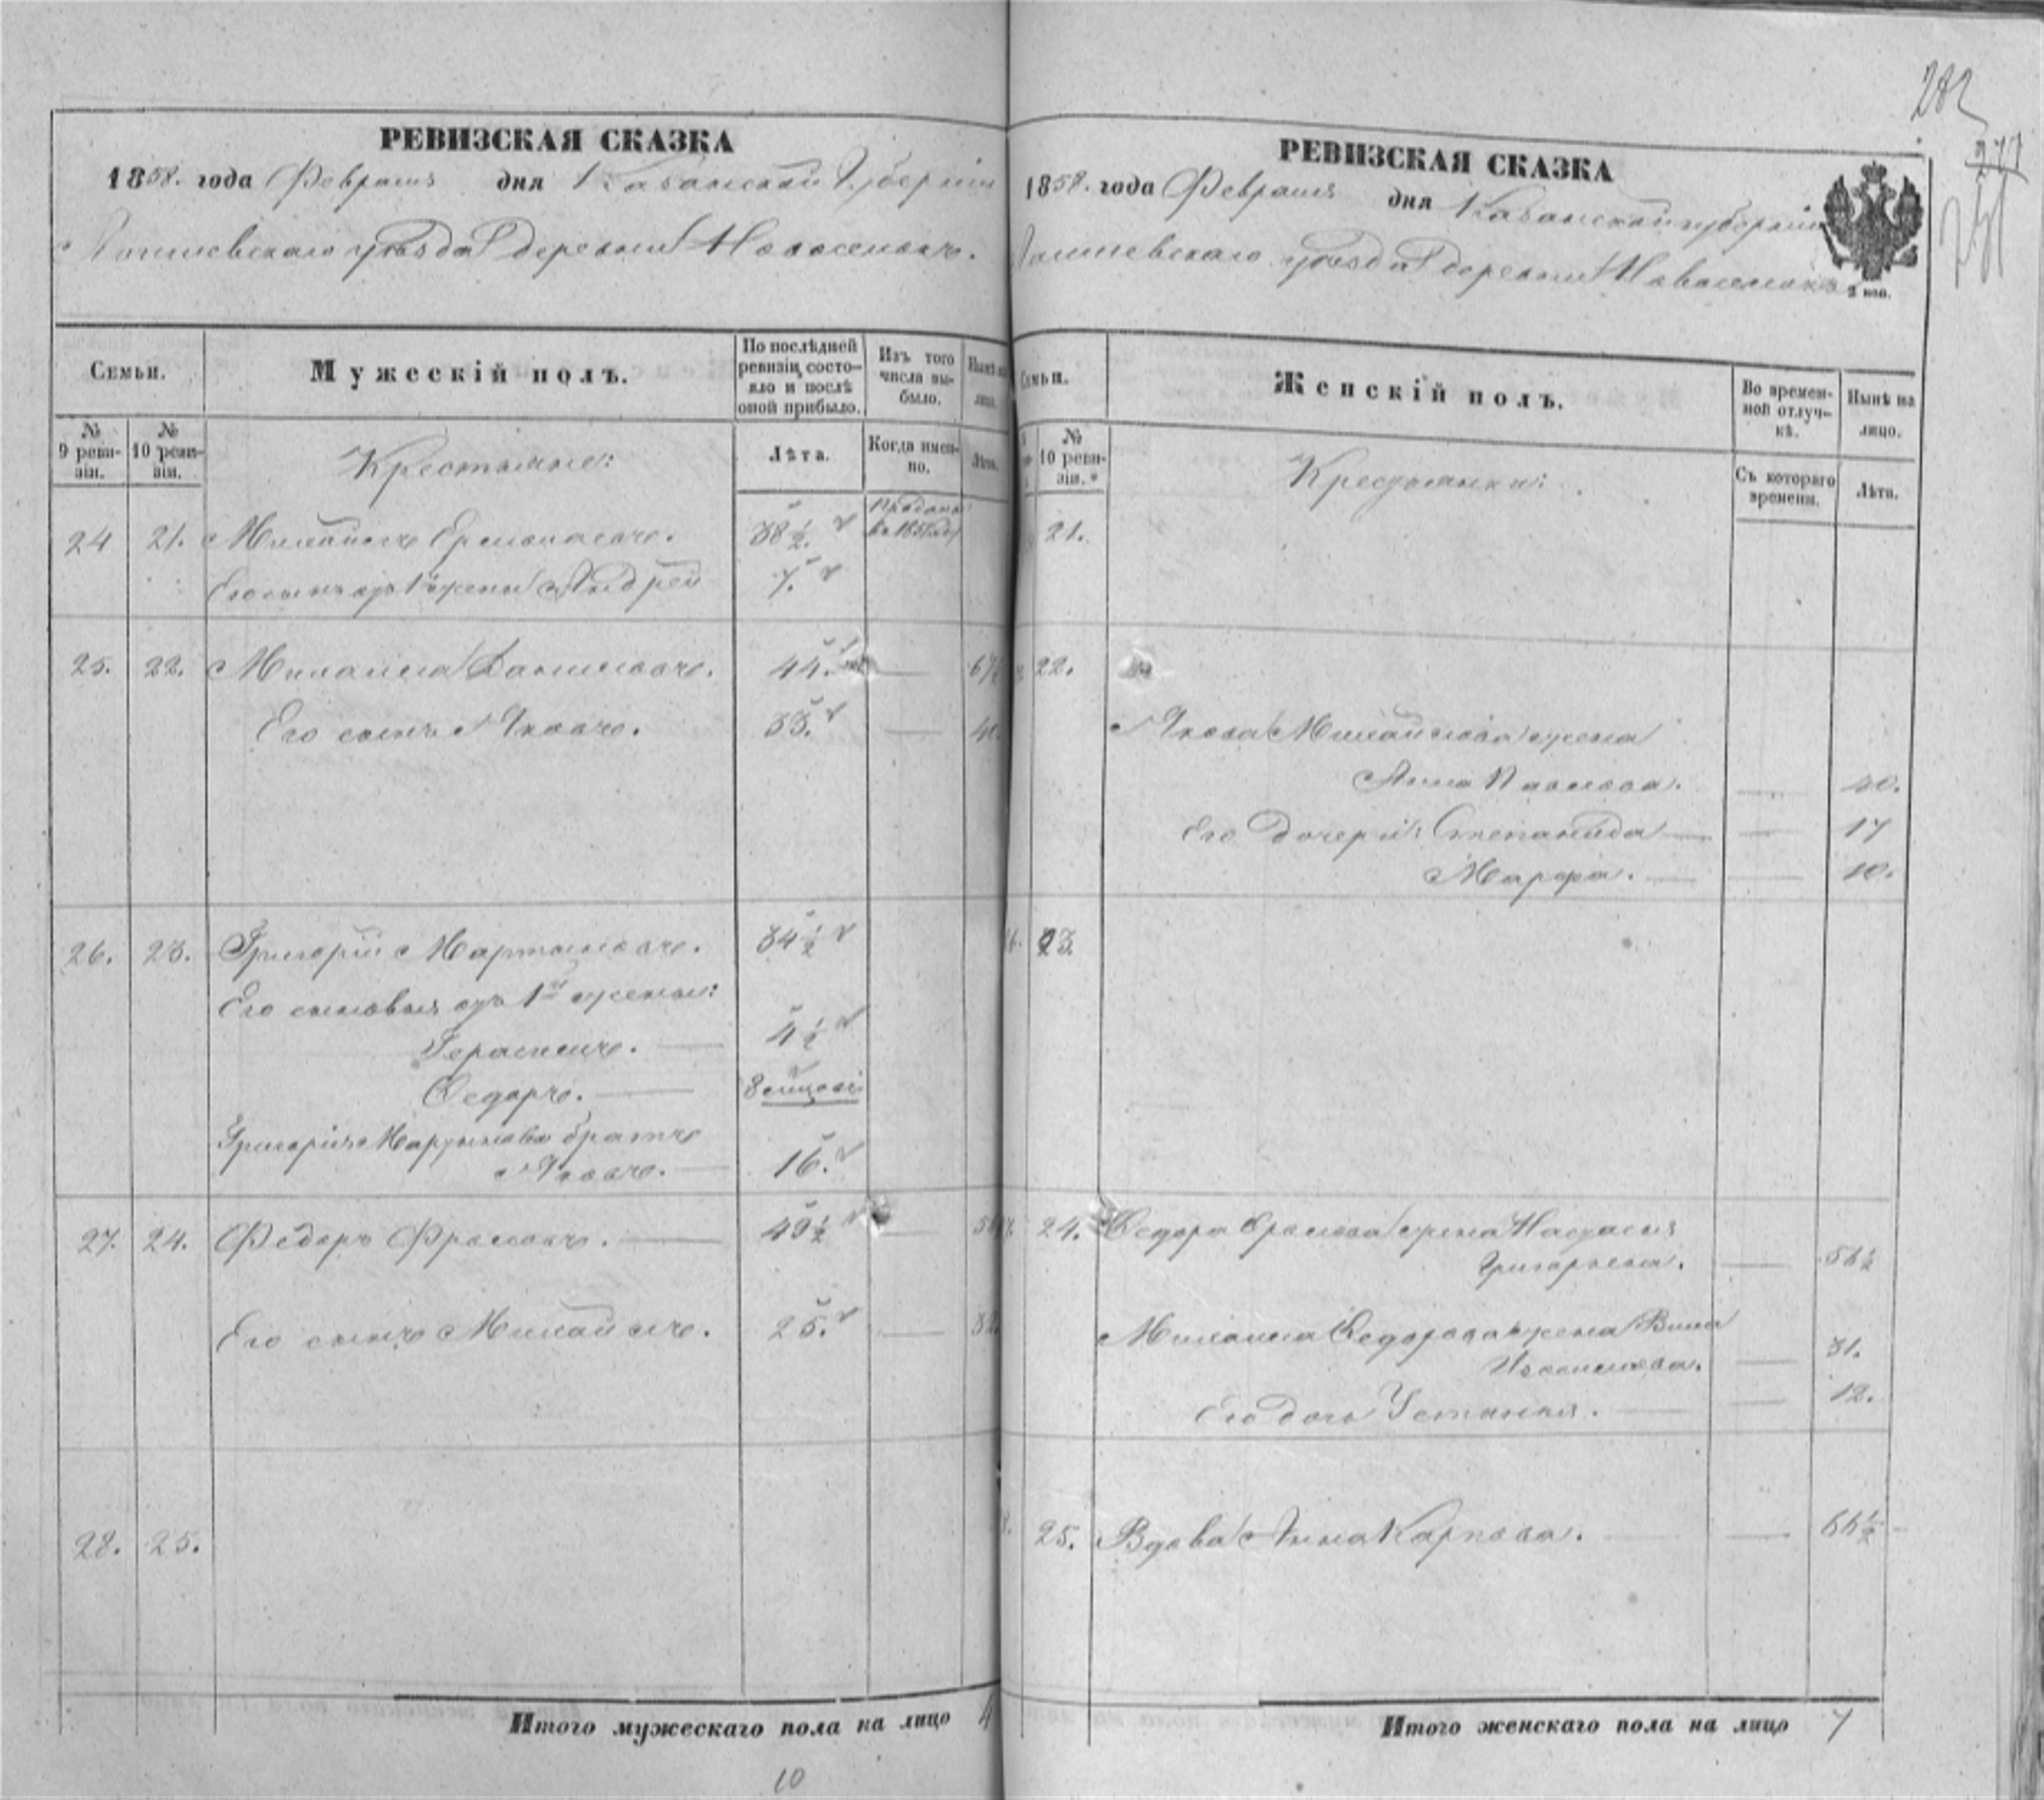 РЕВИЗСКАЯ СКАЗКА
1858. года Февраля дня Казанской Губерніи
уѣзда деревни Новоселокъ.
Семьи.
Мужескій полъ.
По послѣдней ревизіи состояло и послѣ оной прибыло.
Изъ того числа выбыло.
Нынѣ на лицо.
№ 9 ревизіи.
№ 10 ревизіи.
Крестьяне:
Лѣта.
Когда именно.
Лѣта.
24 21. Михайло 38 ½
Его сынъ отъ 1й жены Андрей 7.
25. 22. Михайла Даниловъ. 44. — 67
Его сынъ Яковъ. 33. — 40
26. 23. Григорій Мартыновъ. 34 ½
Его сыновья отъ 1й жены:
Герасимъ. — 4 ½
Ѳедоръ. — 8
Григорія Мартынова братъ
Яковъ. — 16.
27. 24. Федоръ Фроловъ. — 49 ½ —
Его сынъ Михайло. 25. — 32
28. 25.
Итого мужескаго пола на лицо 4
10
282
277
РЕВИЗСКАЯ СКАЗКА
1858. года Февраля дня Казанской губерніи
уѣзда деревни Новоселокъ
2 коп.
Семьи.
Женскій полъ.
Во временной отлучкѣ.
Нынѣ на лицо.
№ 10 ревизіи.
Крестьянки:
Съ котораго времени.
Лѣта.
21.
22.
Якова Михайлова жена
Анна Павлова. — 40.
Его дочери: Степанида — — 17
Марфа. — — 10.
23
24. Ѳедора Фролова жена Настасья
Григорьева. — 56½
Михаила Ѳедорова жена
31.
Его дочь Устинья. — — 12.
25. Вдова Анна Карпова. — — 66½
Итого женскаго пола на лицо 7